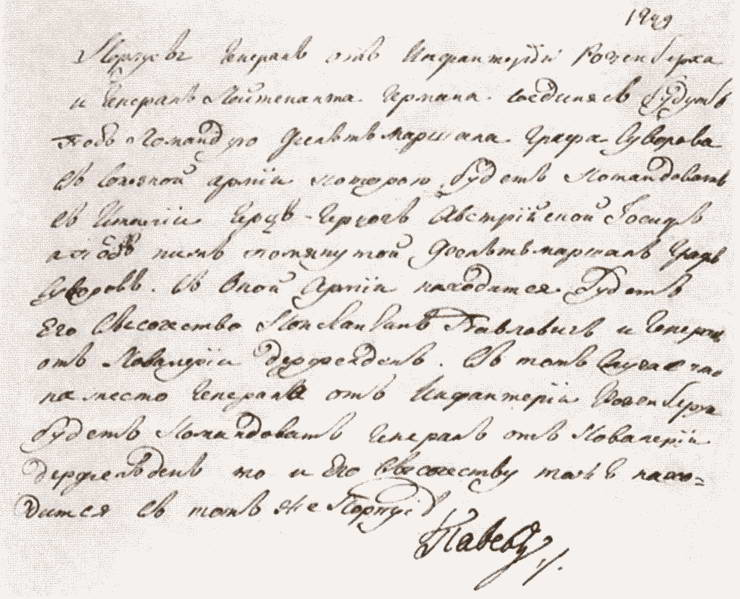 1799
Корпусъ Генерала отъ Инфантерїи Розенберха
и Генералъ Лейтенанта Германа соединясь будутъ
подъ командую Фельтьмаршала Графа Суворова
Въ союзной армїи которою будетъ командовать
въ Италїи Ерцъ-Герцогъ Австрїйской Їосифъ
а подъ нимъ помянутой Фельтьмаршалъ Графъ
Суворовъ. Въ оной армїи находится будетъ
Его Высочество Константинъ Павловичъ и Генералъ
отъ Кавалерїи дерфельденъ. Въ томъ случае что
на место Генерала отъ Инфантерїи Розенберха
будетъ командовать Генералъ отъ Кавалерїи
дерфельденъ то и Его Высочеству тамъ нахо=
дится въ томъ же Корпусѣ
Павелъ